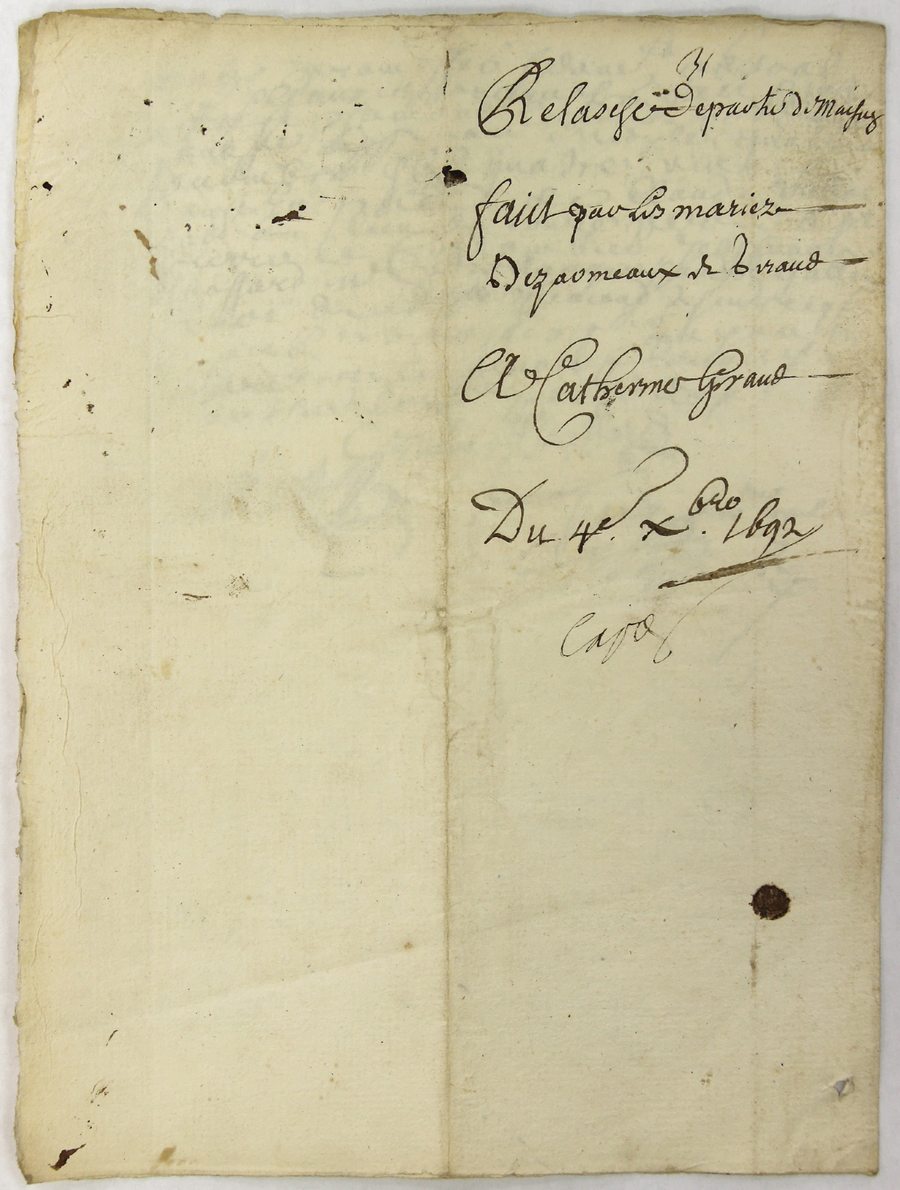 31
Relasche de partie de Maison
fait par les mariez
Dezarmeaux & Giraud
A Catherine Giraud
Du 4e. Xbre. 1692